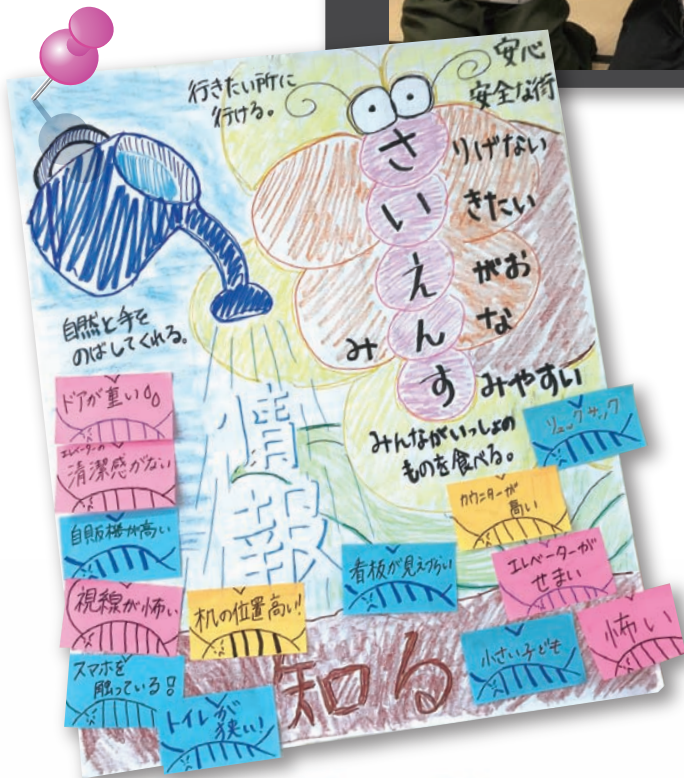 行きたい所に
行ける。
安心
安全な街
さりげない
いきたい
えがお
みんな
すみやすい
自然と手を
のばしてくれる。
情報
みんながいっしょの
ものを食べる。
ドアが重い
エレベーターの
清潔感がない
自販機が高い
視線が怖い
スマホを
触っている!
トイレが
狭い!
机の位置高い!
看板が見えづらい
リュックサック
カウンターが
高い
エレベーターが
せまい
小さい子ども
怖い
知る